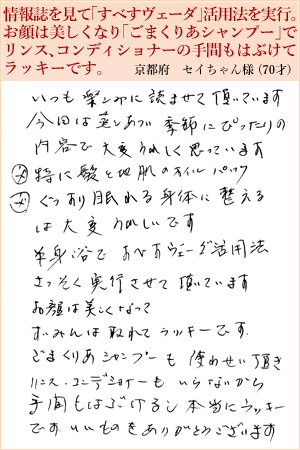 情報誌を見て「すべすヴェーダ」活用法を実行。
お顔は美しくなり「ごまくりあシャンプー」で
リンス、コンディショナーの手間もはぶけて
ラッキーです。
京都府 セイちゃん様（70才）
いつも楽しみに読ませて頂いています
今回は蒸しあつい季節にぴったりの
内容で大変うれしく思っています
特に髪と地肌のオイルパック
ぐっすり眠れる身体に整える
は大変うれしいです
半身浴で すべすヴェーダ活用法
さっそく実行させて頂いています
お顔は美しくなって
は取れてラッキーです
ごまくりあシャンプーも使わせて頂き
リンス・コンデショナーもいらないから
手間もはぶけるし本当にラッキー
です いいものをありがとうございます